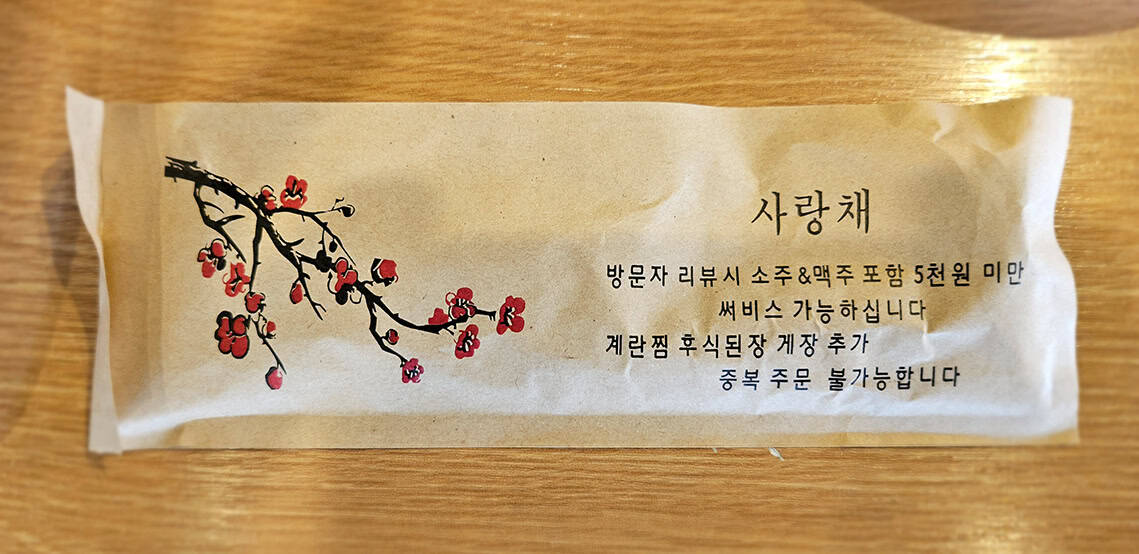 사랑채
방문자 리뷰시 소주&맥주 포함 5천원 미만
써비스 가능하십니다
계란찜 후식된장 게장 추가
중복 주문 불가능합니다